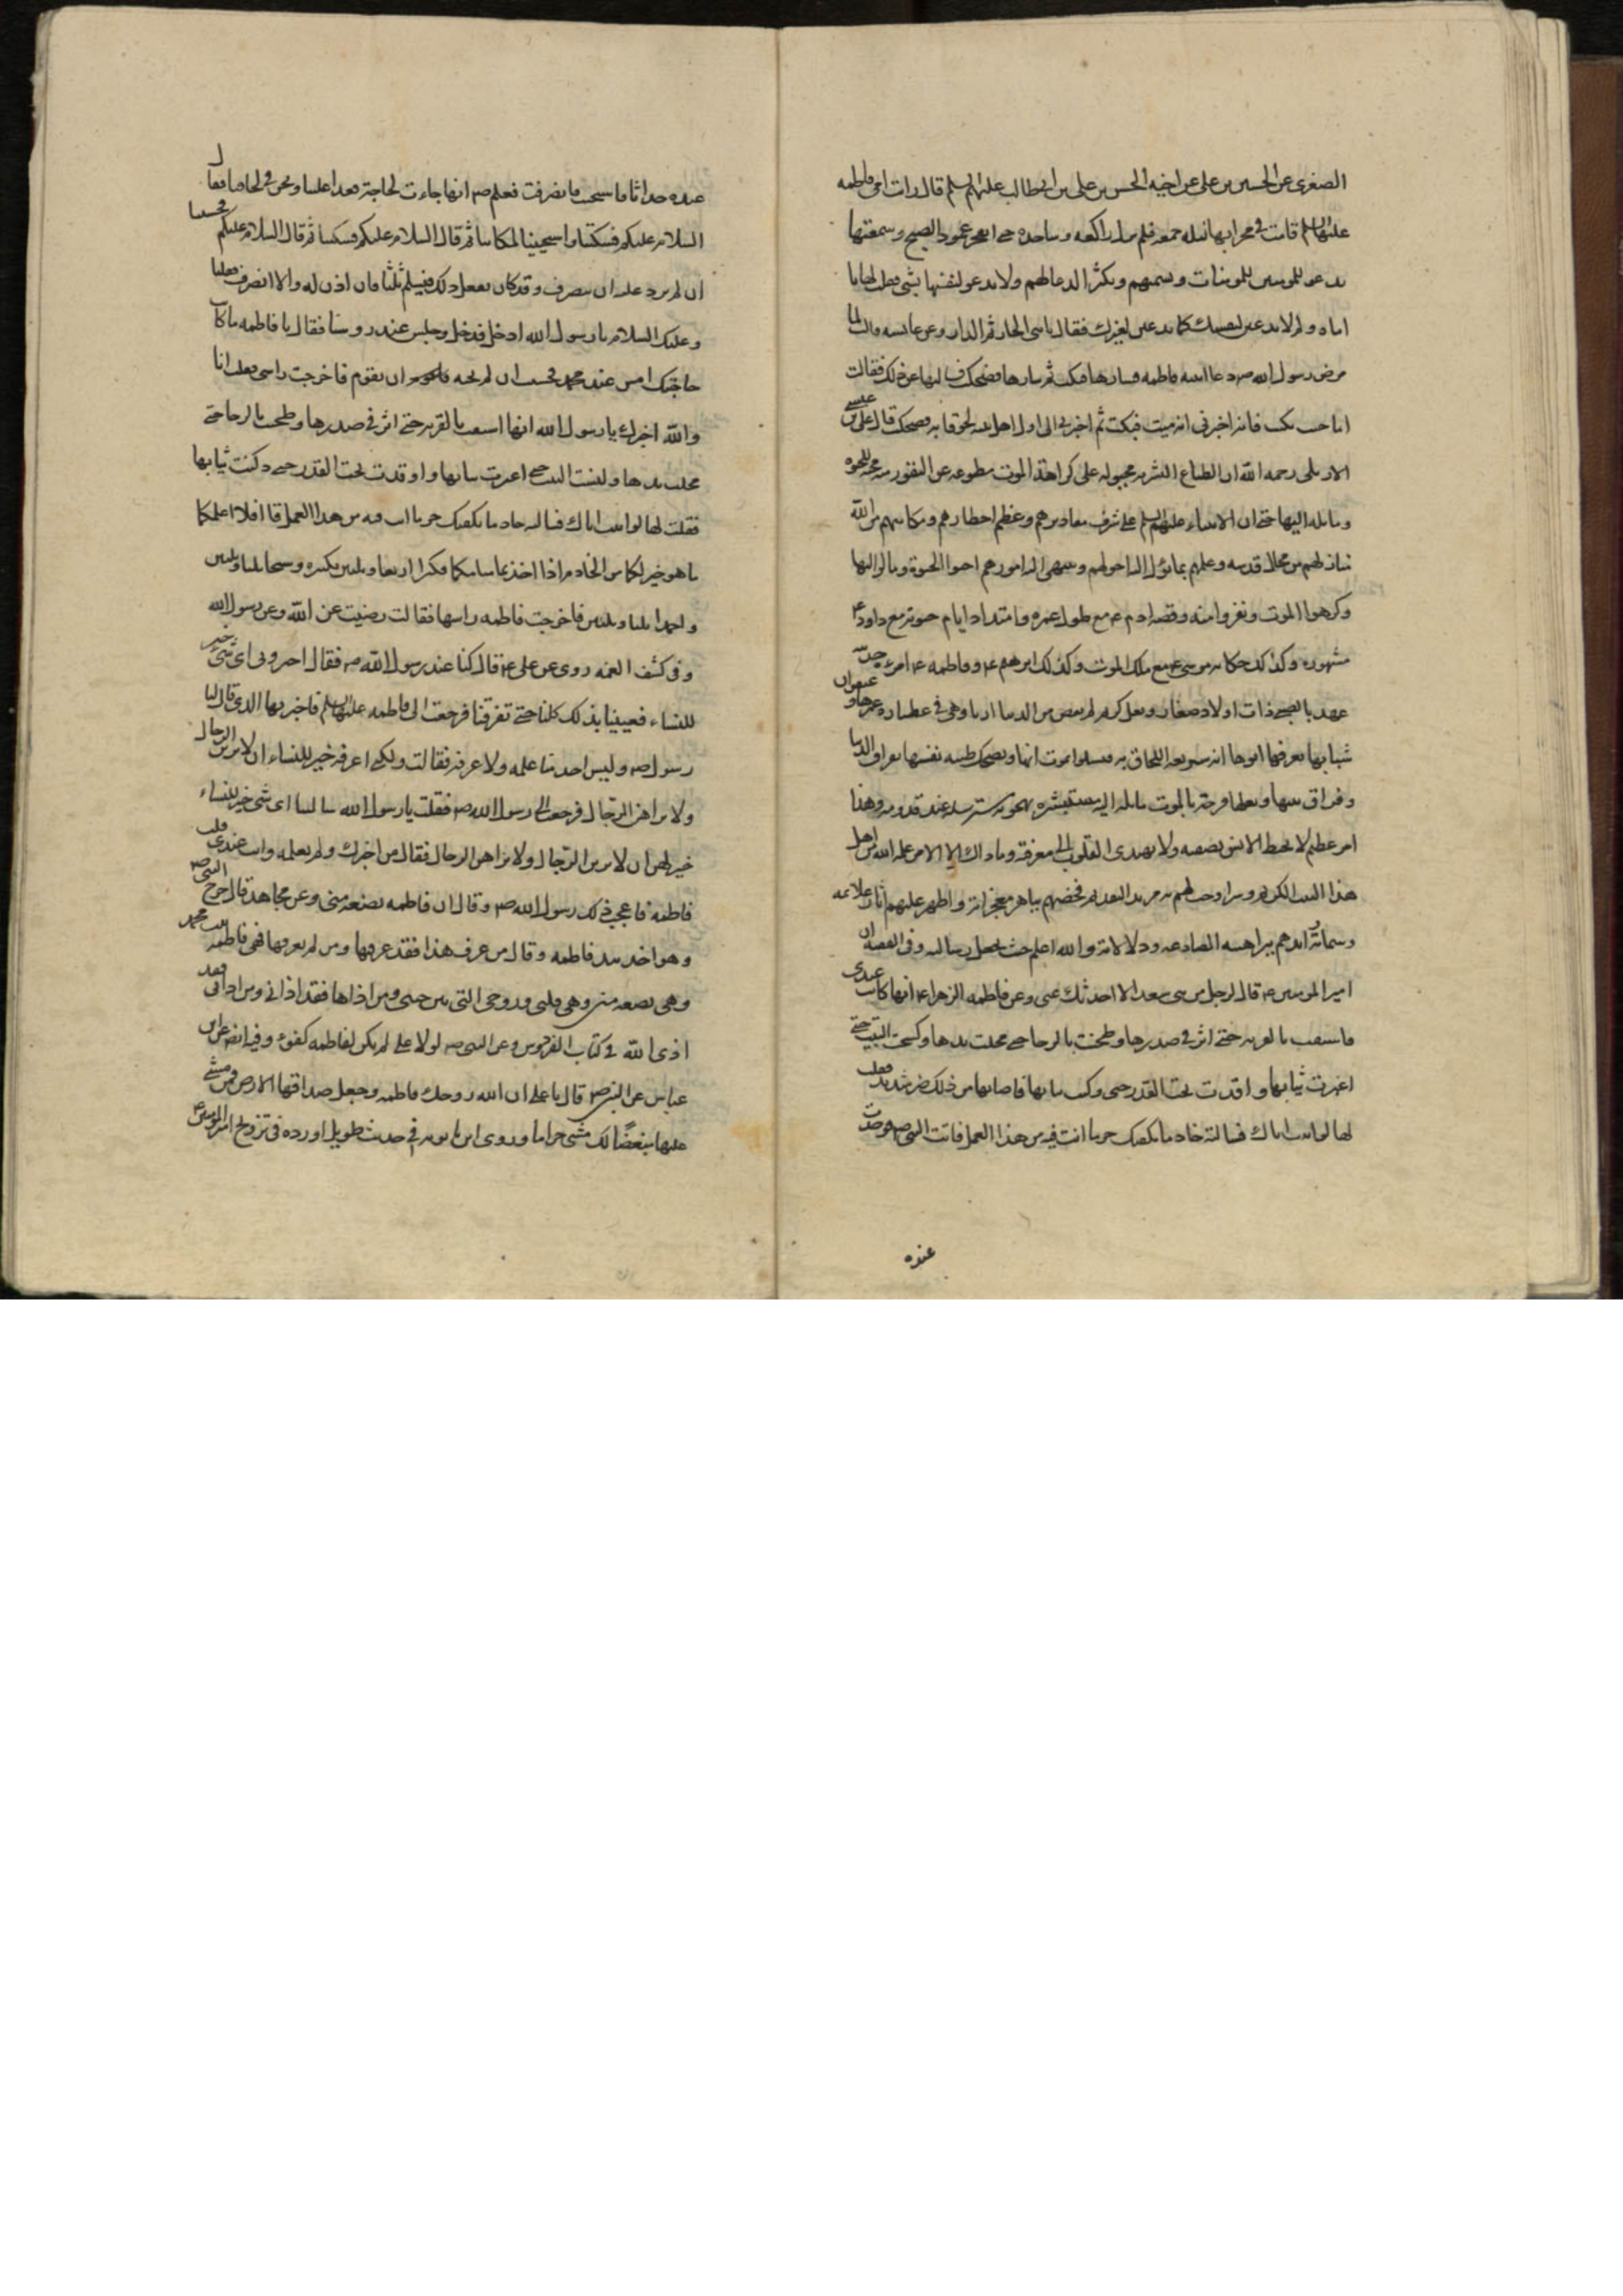 الصغرى عن الحسين بن على عن اخيه الحسن بن على بن ابى طالب عليهم السلم قال رات امى فاطمه
عليها السلم قامت فى محرابها ليله جمعه فلم تزل راكعه وساجده حتى انفجر عمود الصبح وسمعتها
تدعو للمومنين للمومنات وتسميهم وتكثر الدعا لهم ولا تدعو لنفسها بشى فقلت لها يا
اماه ولم لا تدعين لنفسك كما تدعين لغيرك فقال يا بنى الجار ثم الدار وعن عايسه قالت لما
مرض رسول الله صم دعا ابنته فاطمه فسارها فبكت ثم سارها فضحكت فسالتها عن ذلك فقالت
اما حين بكيت فانه اخبرنى انه ميت فبكيت ثم اخبرنى انى اول اهل بيته لحوقا به فضحكت قال على بن عيسى
الاربلى رحمه الله ان الطباع البشريه مجبوله على كراهة الموت مطبوعه عن النفور منه محبة للحيوه
ومايله اليها حتى ان الانبياء عليهم السلم على شرف مقاديرهم وعظم اخطارهم ومكانتهم من الله
ومنازلهم من محال قدسه وعلمهم بما تؤل اليه احوالهم وتنتهى اليه امورهم احبوا الحيوة ومالوا اليها
وكرهوا الموت ونفروا منه وقصه ادم ع مع طول عمره وامتداد ايام حيوته مع داود ع
مشهوره وكذلك حكايه موسى ع مع ملك الموت وكذلك ابرهيم ع وفاطمه ع امراة حديثة
عهد بالصبى ذات اولاد صغار وبعل كريم لم تقض من الدنيا اربا وهى فى عنفوان عمرها و
شبابها يعرفها ابوها انه سريعه اللحاق به فتسلوا موت ابيها وتضحك طيبه نفسها بفراق الدنيا
وفراق بنيها وبعلها فرحة بالموت مايله اليه مستبشره بهجومه مسترسله عند قدومه وهذا
امر عظيم لا تحيط الالسن بصفته ولا تهتدى القلوب الى معرفته وما ذاك الا لامر علمه الله من اهل
هذا البيت الكريم وسر اوجب لهم به مزيد التقديم فخصهم بباهر معجزاته واظهر عليهم اثار علائمه
وسماته وايدهم ببراهينه الصادعه ودلالاته والله اعلم حيث يجعل رسالته وفى الفقيه ان
امير المومنين ع قال لرجل من بنى سعد الا احدثك عنى وعن فاطمه الزهراء ع انها كانت عندى
فاستقت بالقربه حتى اثر فى صدرها وطحنت بالرحا حتى مجلت يدها وكسحت البيت حتى
اغبرت ثيابها واوقدت تحت القدر حتى دكنت ثيابها فاصابها من ذلك ضر شديد فقلت
لها لو اتيت اباك فسالته خادما يكفيك حر ما انت فيه من هذا العمل فاتت النبى صم فوجدت
عنده
عنده حداثا فاستحت فانصرفت فعلم صم انها جاءت لحاجة فغدا علينا ونحن فى لحافنا فقال
السلام عليكم فسكتنا واستحيينا لمكاننا ثم قال السلام عليكم فسكتنا ثم قال السلام عليكم فخشينا
ان لم نرد عليه ان ينصرف وقد كان يفعل ذلك فيسلم ثلثا فان اذن له والا انصرف فقلنا
وعليك السلام يا رسول الله ادخل فدخل وجلس عند روسنا فقال يا فاطمه ما كانت
حاجتك امس عند محمد فخشيت ان لم نجبه ان يقوم فاخرجت راسى فقلت انا
والله اخبرك يا رسول الله انها استقت بالقربه حتى اثر فى صدرها وطحنت بالرحا حتى
مجلت يدها وكنست البيت حتى اغبرت ثيابها واوقدت تحت القدر حتى دكنت ثيابها
فقلت لها لو اتيت اباك فسالته خادما يكفيك حر ما انت فيه من هذا العمل قال افلا اعلمكما
ما هو خير لكما من الخادم اذا اخذتما منامكما فكبرا اربعا وثلثين تكبيره وسبحا ثلثا وثلثين
واحمدا ثلثا وثلثين فاخرجت فاطمه راسها فقالت رضيت عن الله وعن رسول الله
وفى كشف الغمه روى عن على ع قال كنا عند رسول الله صم فقال اخبرونى اى شئ خير
للنساء فعيينا بذلك كلنا حتى تفرقنا فرجعت الى فاطمه عليها السلم فاخبرتها الذى قال لنا
رسول صم وليس احد منا علمه ولا عرفه فقالت ولكنى اعرفه خير للنساء ان لا يرين الرجال
ولا يراهن الرجال فرجعت الى رسول الله صم فقلت يا رسول الله سالتنا اى شى خير للنساء
خير لهن ان لا يرين الرجال ولا يراهن الرجال فقال من اخبرك ولم تعلمه وانت عندى قلت
فاطمة فاعجب ذلك رسول الله صم وقال ان فاطمه بضعه منى وعن مجاهد قال خرج النبى صم
وهو اخذ بيد فاطمه وقال من عرف هذا فقد عرفها ومن لم يعرفها فهى فاطمه بنت محمد
وهى بضعه منى وهى قلبى وروحى التى بين جنبى ومن اذاها فقد اذانى ومن اذانى فقد
اذى الله فى كتاب الفردوس وعن النبى صم لولا على لم يكن لفاطمه كفوء وفيه ايضا عن ابن
عباس عن النبى صم قال يا على ان الله زوجك فاطمه وجعل صداقها الارض فمن مشى
عليها مبغضًا لك مشى حراما وروى ابن بابويه فى حديث طويل اورده فى تزويج امير المومنين ع